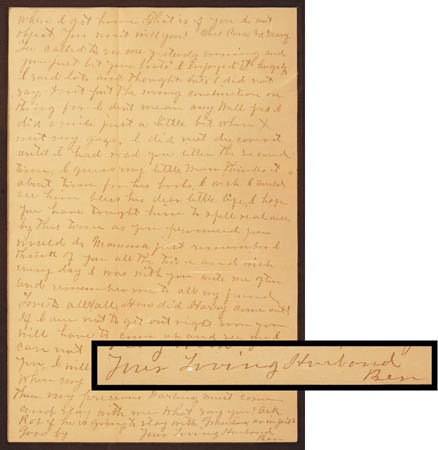 When I get home that is if you do not
object You wont will you? Miss Rosa
called to see me yesterday evening and
you just bet your boots I enjoyed it hugely
I said lots and thought lots I did not
say. Dont put the wrong construction on
this for I dont mean any Well yes I
did smile just a little bit when I
I did not discover it
until I had read your letter the second
time. I guess my little Man thinks it
about time for his boots. I wish I could
see him bless his dear little life. I hope
you have taught him to spell real nice
by this time as you promised you
would do Mamma just remember I
think of you all the time and wish
every day I was with you write me often
and remember me to all my friends
Love to all How did Harry come out?
If I am not to get out right soon you
will have to come up and see me I
can not
You, I will
When my
then my precious Darling must come
and stay with me What say you? Ask
if he is going to stay with
Good by Your Loving Husband
Ben
Your Loving Husband
Ben